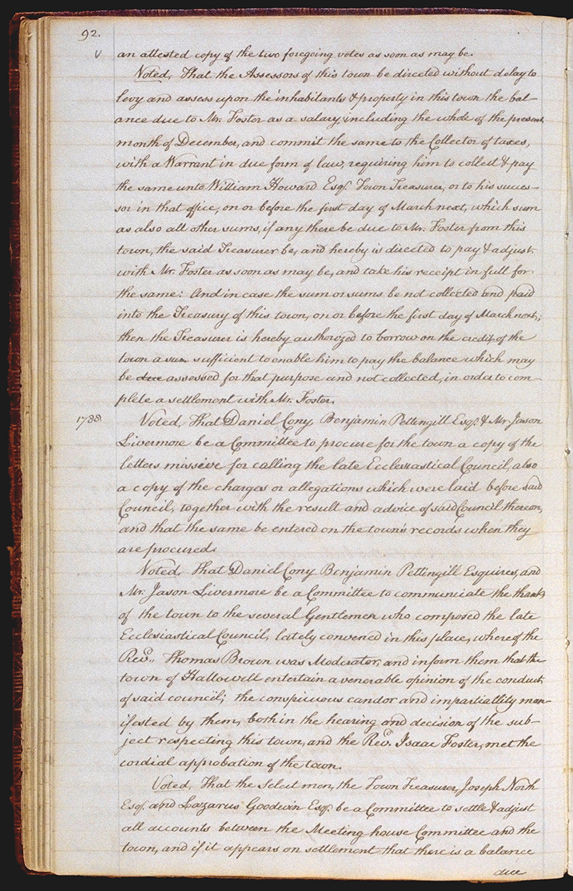 92.
v an attested copy of the two foregoing votes as soon as may be.
Voted, That the Assessors of this town be directed without delay to
levy and assess upon the inhabitants & property in this town the bal-
ance due to Mr. Foster as a salary, including the whole of the present
month of December, and commit the same to the Collector of taxes,
with a Warrant in due form of law, requiring him to collect & pay
the same unto William Howard Esqr. Town Treasurer, or to his succes-
sor in that office, on or before the first day of March next, which sum
as also all other sums, if any there be due to Mr. Foster from this
town, the said Treasurer be, and hereby is directed to pay & adjust
with Mr. Foster as soon as may be, and take his receipt in full for
the same: And in case the sum or sums be not collected and paid
into the Treasury of this town, on or before the first day of March next,
then the Treasurer is hereby authorozed to borrow on the credit of the
town a sum sufficient to enable him to pay the balance which may
be due assessed for that purpose and not collected, in order to com-
plete a settlement with Mr. Foster.
1788. Voted, That Daniel Cony Benjamin Pettengill Esqs. & Mr. Jason
Livermore be a Committee to procure for the town a copy of the
letters missive for calling the late Ecclesiastical Council, also
a copy of the charges or allegations which were laid before said
Council, together with the result and advice of said Council thereon,
and that the same be entered on the town's records when they
are procured.
Voted, That Daniel Cony Benjamin Pettingill Esquires, and
Mr. Jason Livermore be a Committee to communicate the thanks
of the town to the several Gentlemen who composed the late
Ecclesiastical Council, lately convened in this place, whereof the
Revd. Thomas Brown was Moderator, and inform them that the
town of Hallowell entertain a venerable opinion of the conduct
of said council; the conspicuous candor and impartiallity man-
ifested by them, both in the hearing and decision of the sub-
ject respecting this town, and the Revd. Isaac Foster, met the
cordial approbation of the town.
Voted, That the Select men, the Town Treasurer, Joseph North
Esqr. and Lazarus Goodwin Esqr. be a Committee to settle & adjust
all accounts between the Meeting house Committee and the
town, and if it appears on settlement that there is a balance
due